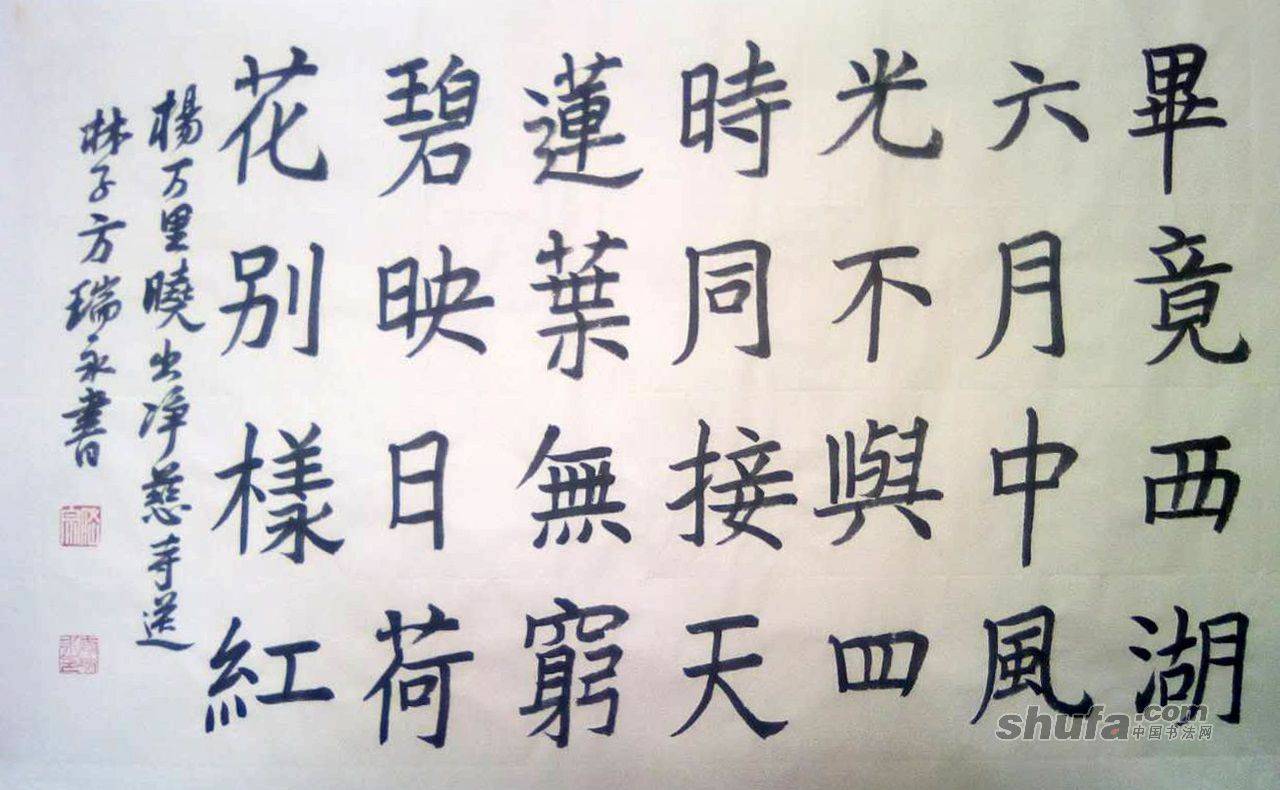 畢竟西湖
六月中風
光不與四
時同接天
蓮葉無窮
碧映日荷
花别樣紅
楊万里曉出净慈寺送
林子方瑞永書
shufa.com
中国书法网